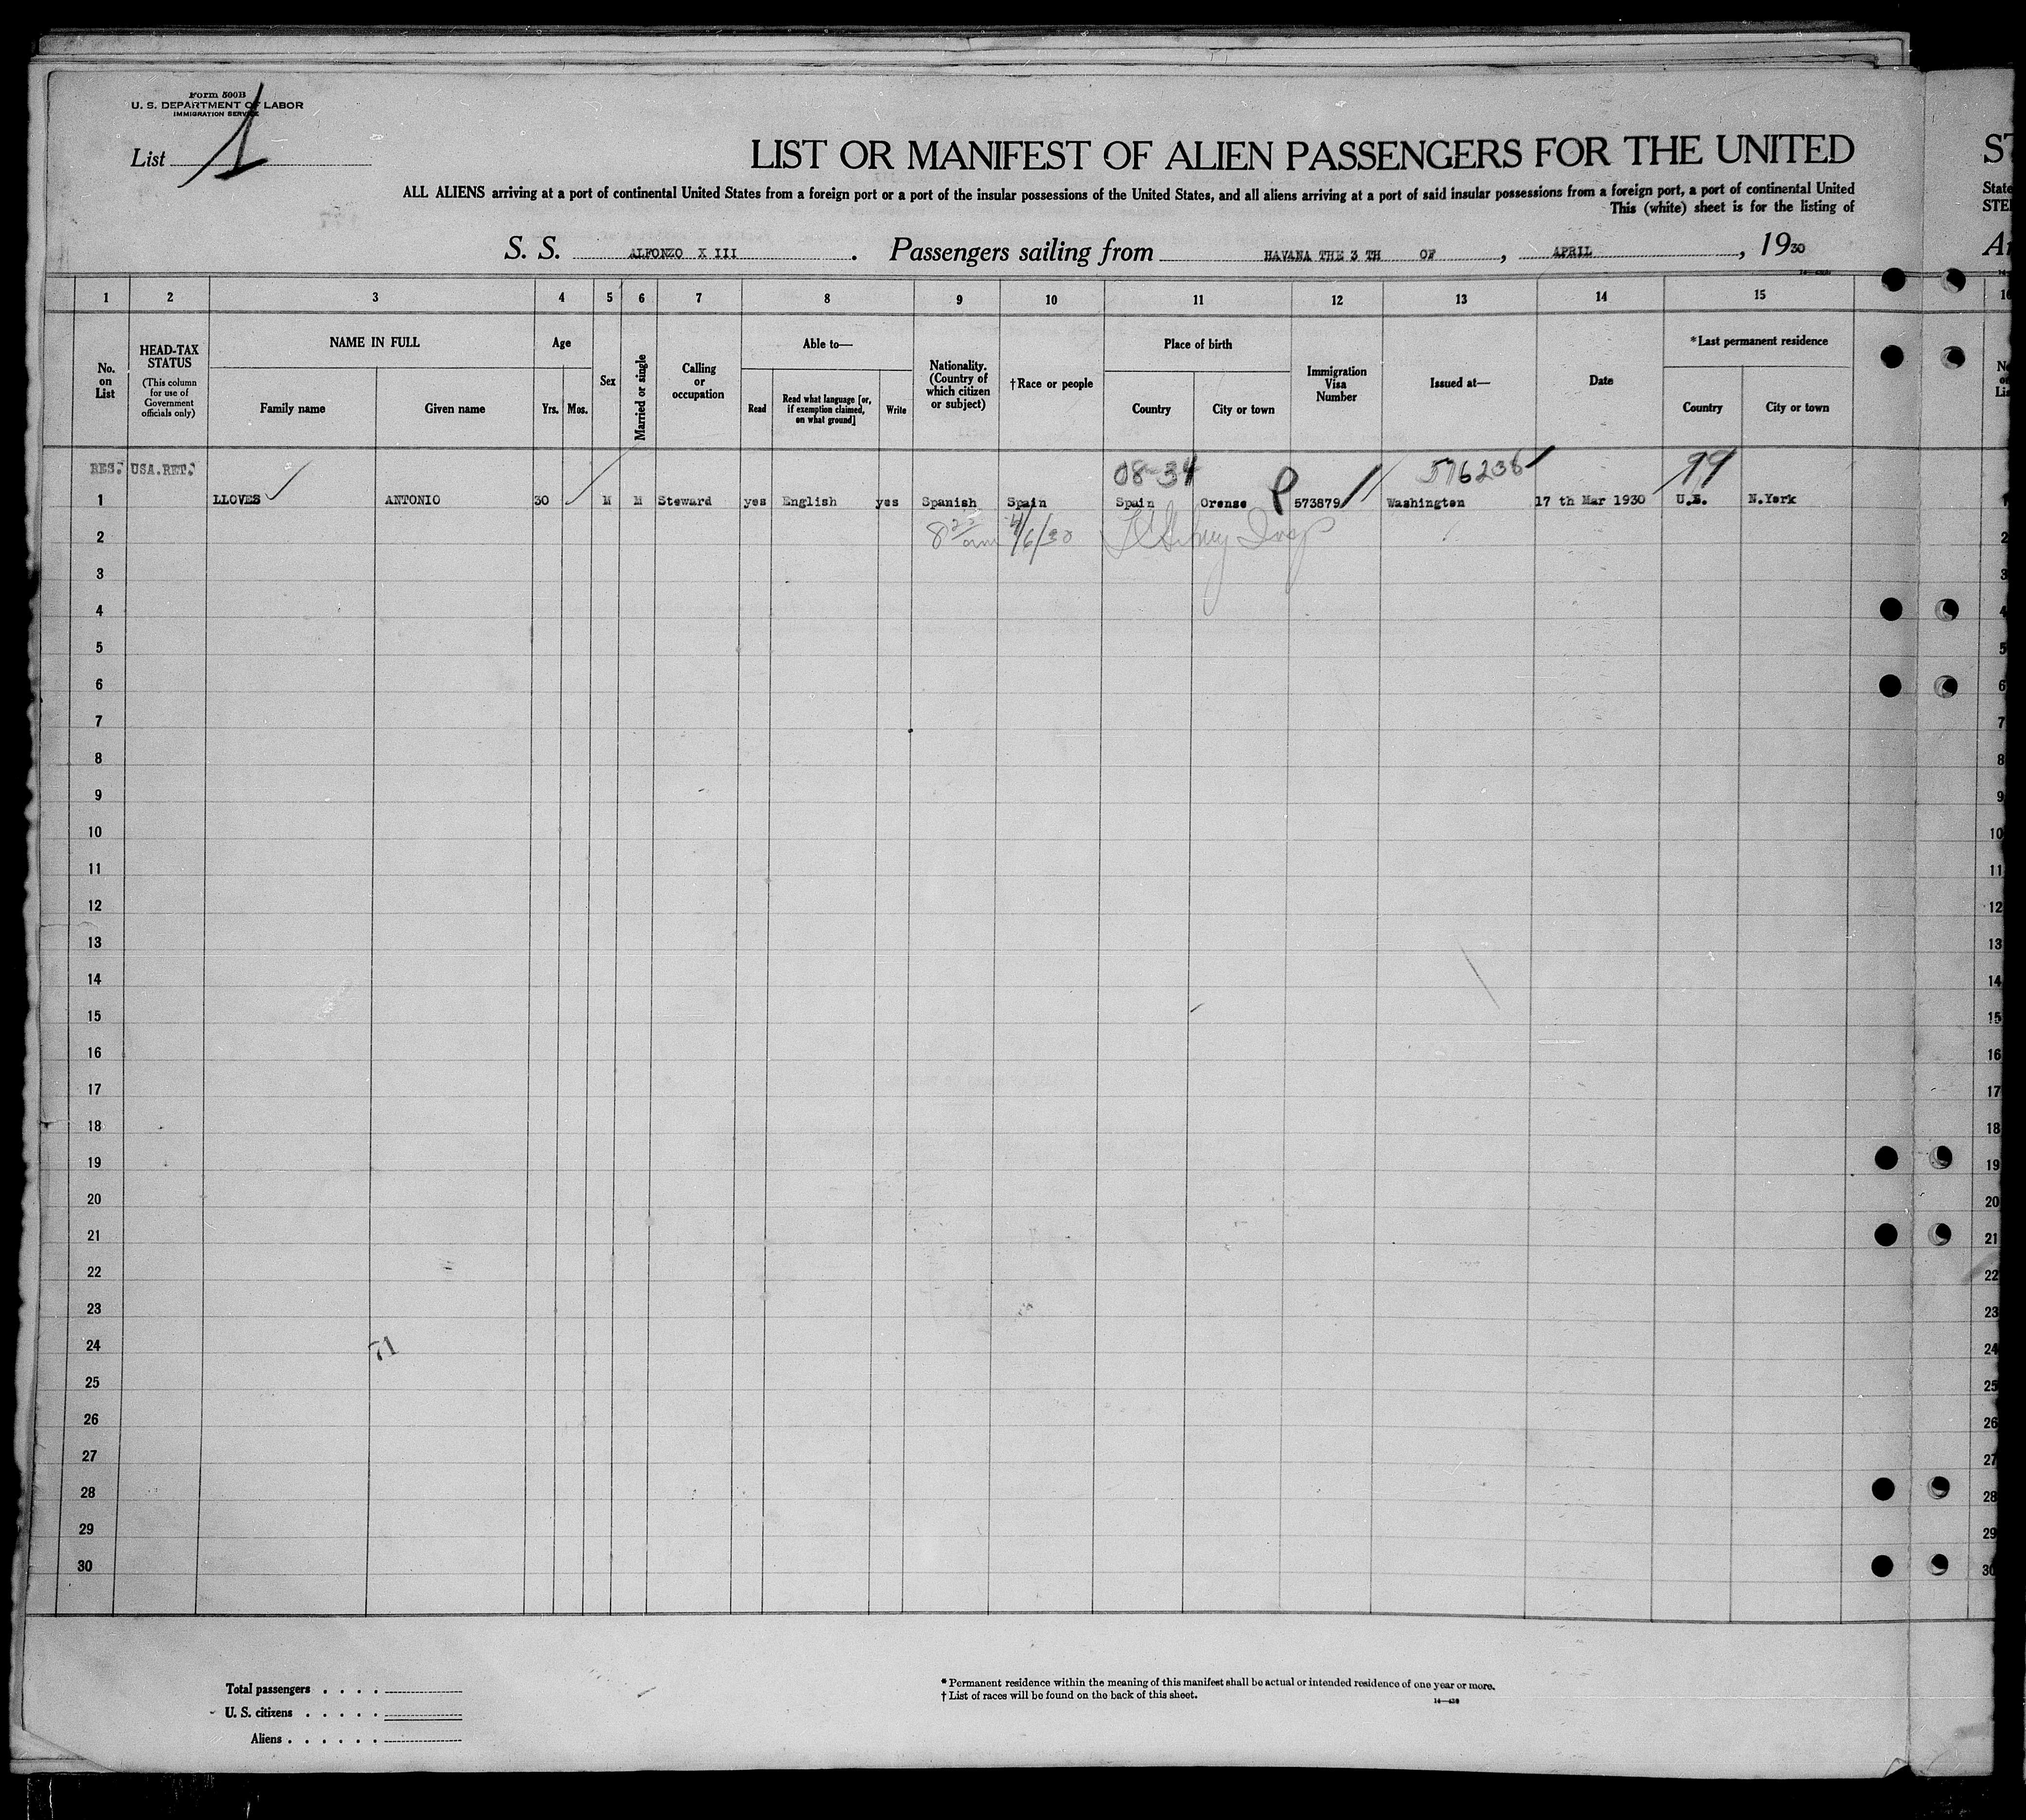 Form 500B
U. S. DEPARTMENT OF LABOR
IMMIGRATION SERVICE
List 1
LIST OR MANIFEST OF ALIEN PASSENGERS FOR THE UNITED
ST
ALL ALIENS arriving at a port of continental United States from a foreign port or a port of the insular possessions of the United States, and all aliens arriving at a port of said insular possessions from a foreign port, a port of continental United
State
This (white) sheet is for the listing of
S. S. ALFONZO X III . Passengers sailing from HAVANA THE 3 TH OF , APRIL , 1930
1 2 3 4 5 6 7 8 9 10 11 12 13 14 15 16
No. on List
HEAD-TAX STATUS
(This column for use of Government officials only)
NAME IN FULL
Family name
Given name
Age
Yrs.
Mos.
Sex
Married or single
Calling or occupation
Able to—
Read
Read what language [or, if exemption claimed, on what ground]
Write
Nationality. (Country of which citizen or subject)
†Race or people
Place of birth
Country
City or town
Immigration Visa Number
Issued at—
Date
*Last permanent residence
Country
City or town
RES: USA.RET: 08-34 576236 99
1 LLOVES ANTONIO 30 M M Steward yes English yes Spanish Spain Spain Orense P 573879 Washington 17 th Mar 1930 U.S. N.York 1
2 4/6/30 2
3 3
4 4
5 5
6 6
7 7
8 8
9 9
10 10
11 11
12 12
13 13
14 14
15 15
16 16
17 17
18 18
19 19
20 20
21 21
22 22
23 23
24 71 24
25 25
26 26
27 27
28 28
29 29
30 30
Total passengers . . . .
U. S. citizens . . . . .
Aliens . . . . . .
* Permanent residence within the meaning of this manifest shall be actual or intended residence of one year or more.
† List of races will be found on the back of this sheet.